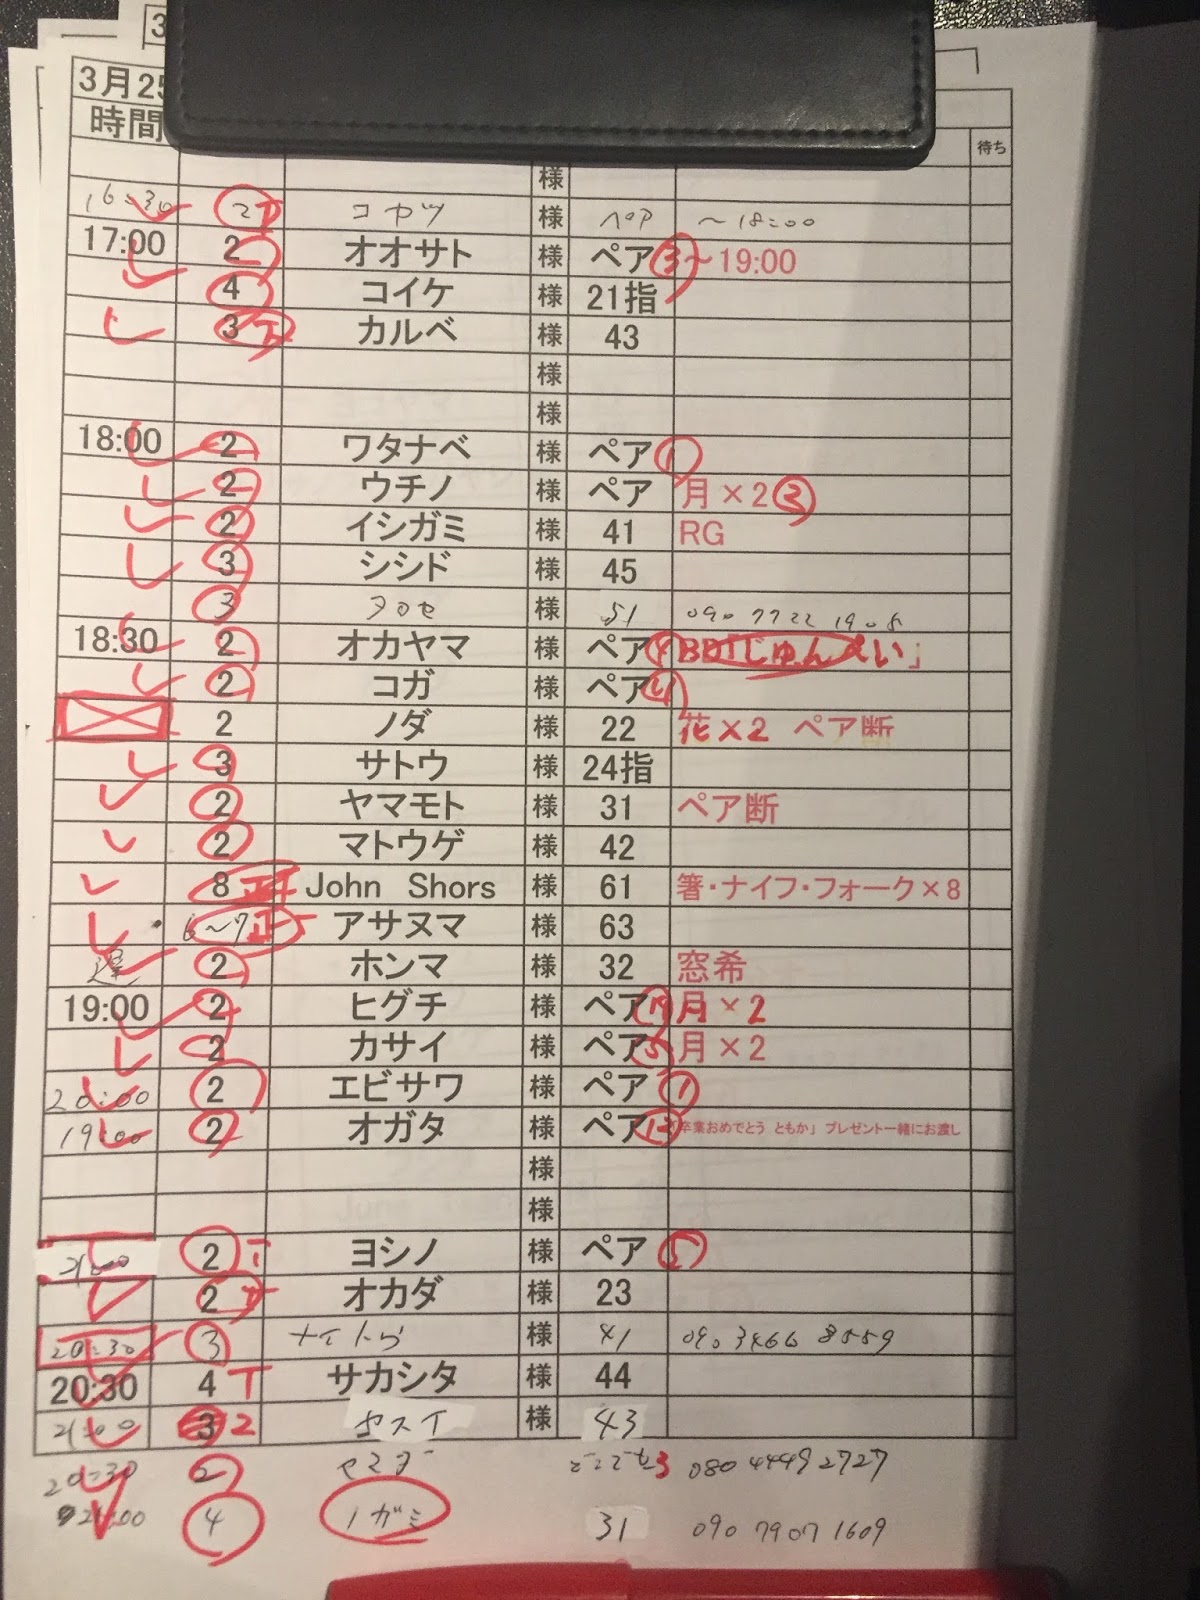 3月25
時間 待ち
様
16:30 2 コヤツ 様 ペア 〜18:00
17:00 2 オオサト 様 ペア ③ 〜19:00
4 コイケ 様 21指
3 カルベ 様 43
様
様
18:00 2 ワタナベ 様 ペア ①
2 ウチノ 様 ペア 月×2 ③
2 イシガミ 様 41 RG
3 シシド 様 45
3 様 51 090 7722 1908
18:30 2 オカヤマ 様 ペア BD「じゅんぺい」
2 コガ 様 ペア ④
2 ノダ 様 22 花×2 ペア断
3 サトウ 様 24指
2 ヤマモト 様 31 ペア断
2 マトウゲ 様 42
8 正 John Shors 様 61 箸・ナイフ・フォーク×8
6〜7 正 アサヌマ 様 63
遅 2 ホンマ 様 32 窓希
19:00 2 ヒグチ 様 ペア 月×2
2 カサイ 様 ペア ⑤ 月×2
20:00 2 エビサワ 様 ペア ①
19:00 2 オガタ 様 ペア 卒業おめでとう ともか」 プレゼント一緒にお渡し
様
様
21:00 2 T ヨシノ 様 ペア ⑤
2 オカダ 様 23
20:30 3 ナイトウ 様 41 090 3466 8559
20:30 4 T サカシタ 様 44
21:00 3 2 ヤスイ 様 43
20:30 2 ヤマダ 3 080 4449 2727
21:00 4 ノガミ 31 090 7907 1609